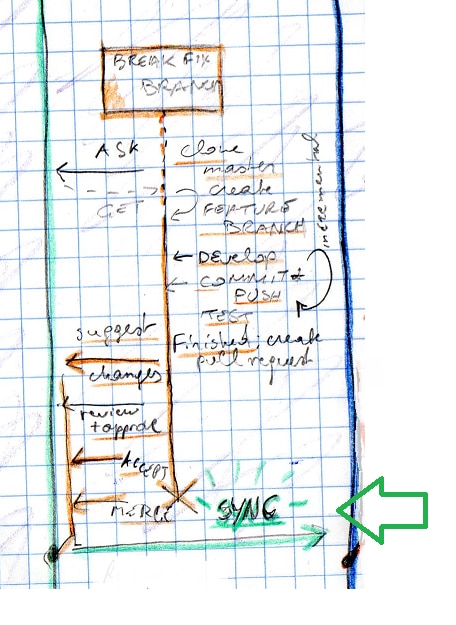 BREAK FIX
BRANCH
ASK
clone
master
GET
create
FEATURE
BRANCH
incremental
DEVELOP
COMMIT &
PUSH
TEST
suggest
changes
Finished: create
pull request
review
+ approve
ACCEPT
MERGE
SYNC